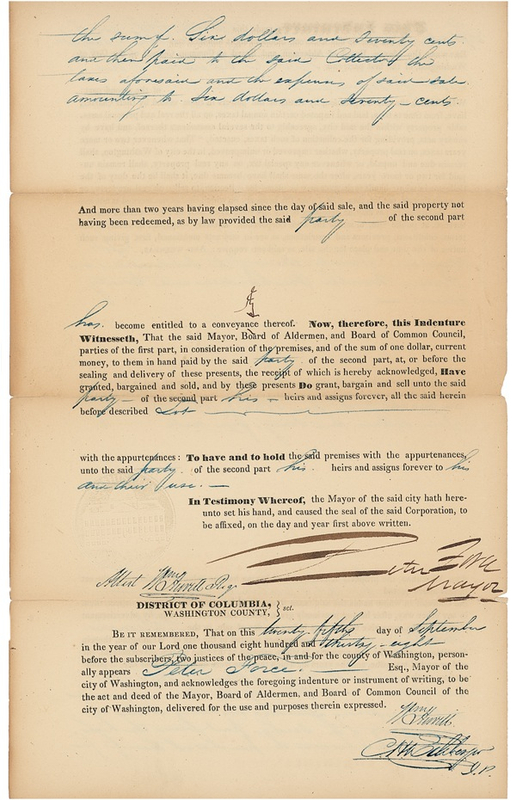 the sum of Six dollars and Seventy cents.
and then paid to the said Collector the
taxes aforesaid and the expenses of said sale
amounting to Six dollars and Seventy - cents.
And more than two years having elapsed since the day of said sale, and the said property not
having been redeemed, as by law provided the said party — of the second part
has become entitled to a conveyance thereof. Now, therefore, this Indenture
Witnesseth, That the said Mayor, Board of Aldermen, and Board of Common Council,
parties of the first part, in consideration of the premises, and of the sum of one dollar, current
money, to them in hand paid by the said party of the second part, at, or before the
sealing and delivery of these presents, the receipt of which is hereby acknowledged, Have
granted, bargained and sold, and by these presents Do grant, bargain and sell unto the said
party — of the second part his — heirs and assigns forever, all the said herein
before described Lot
with the appurtenances: To have and to hold the said premises with the appurtenances,
unto the said party of the second part his heirs and assigns forever to his
and their use. —
In Testimony Whereof, the Mayor of the said city hath here-
unto set his hand, and caused the seal of the said Corporation, to
be affixed, on the day and year first above written.
Peter Force
Mayor
Attest Wm Hewitt Regr
DISTRICT OF COLUMBIA, } sct.
WASHINGTON COUNTY,
BE IT REMEMBERED, That on this twenty fifth day of September
in the year of our Lord one thousand eight hundred and thirty-eight
before the subscribers, two justices of the peace, in and for the county of Washington, person-
ally appears Peter Force. Esq., Mayor of the
city of Washington, and acknowledges the foregoing indenture or instrument of writing, to be
the act and deed of the Mayor, Board of Aldermen, and Board of Common Council of the
city of Washington, delivered for the use and purposes therein expressed.
Wm Hewitt
J.P.